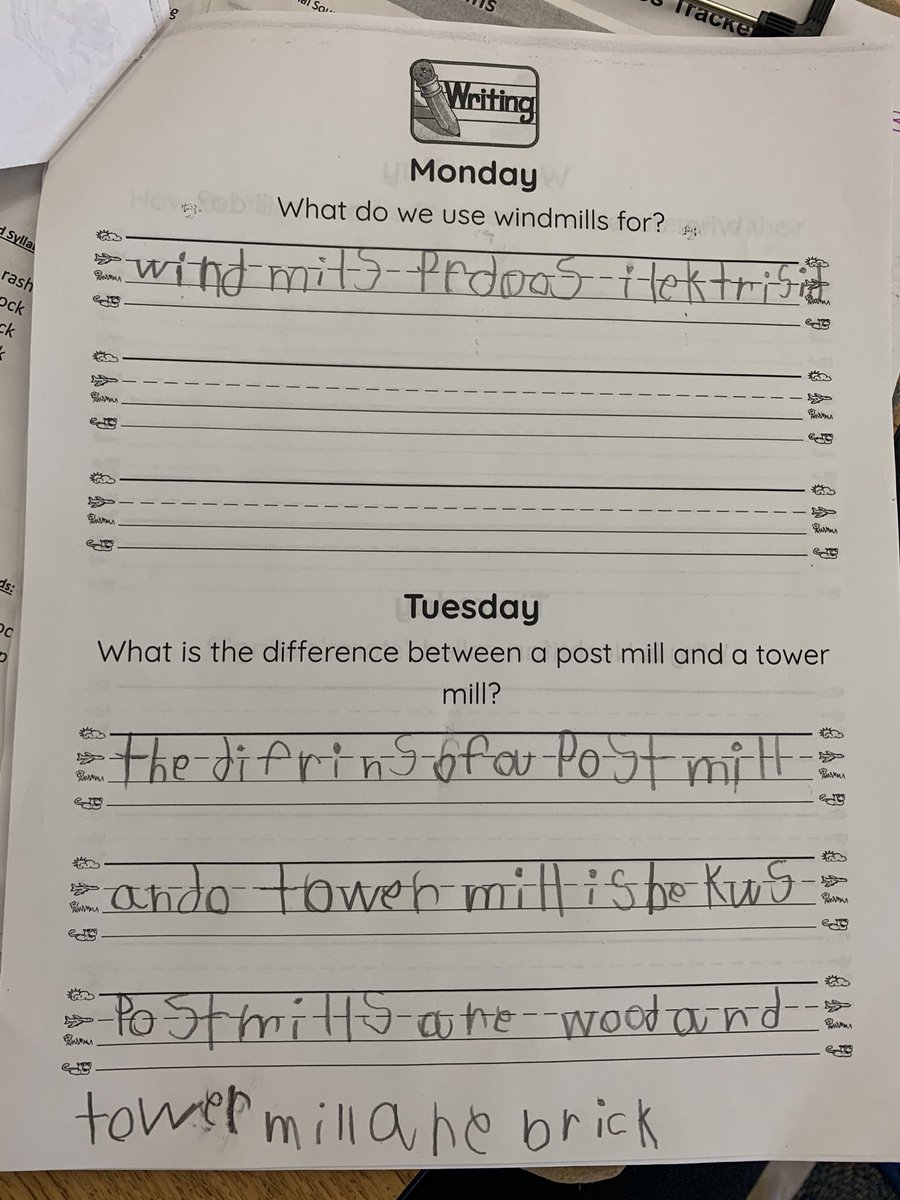 Tracke
d Sylla
rash
ock
ck
k
ds:
Writing
Monday
What do we use windmills for?
wind mils Prdoos ilektrisit
Tuesday
What is the difference between a post mill and a tower
mill?
the difrins of a Post mill
and a tower mill is be kus
Post mills are wood and
tower mill are brick